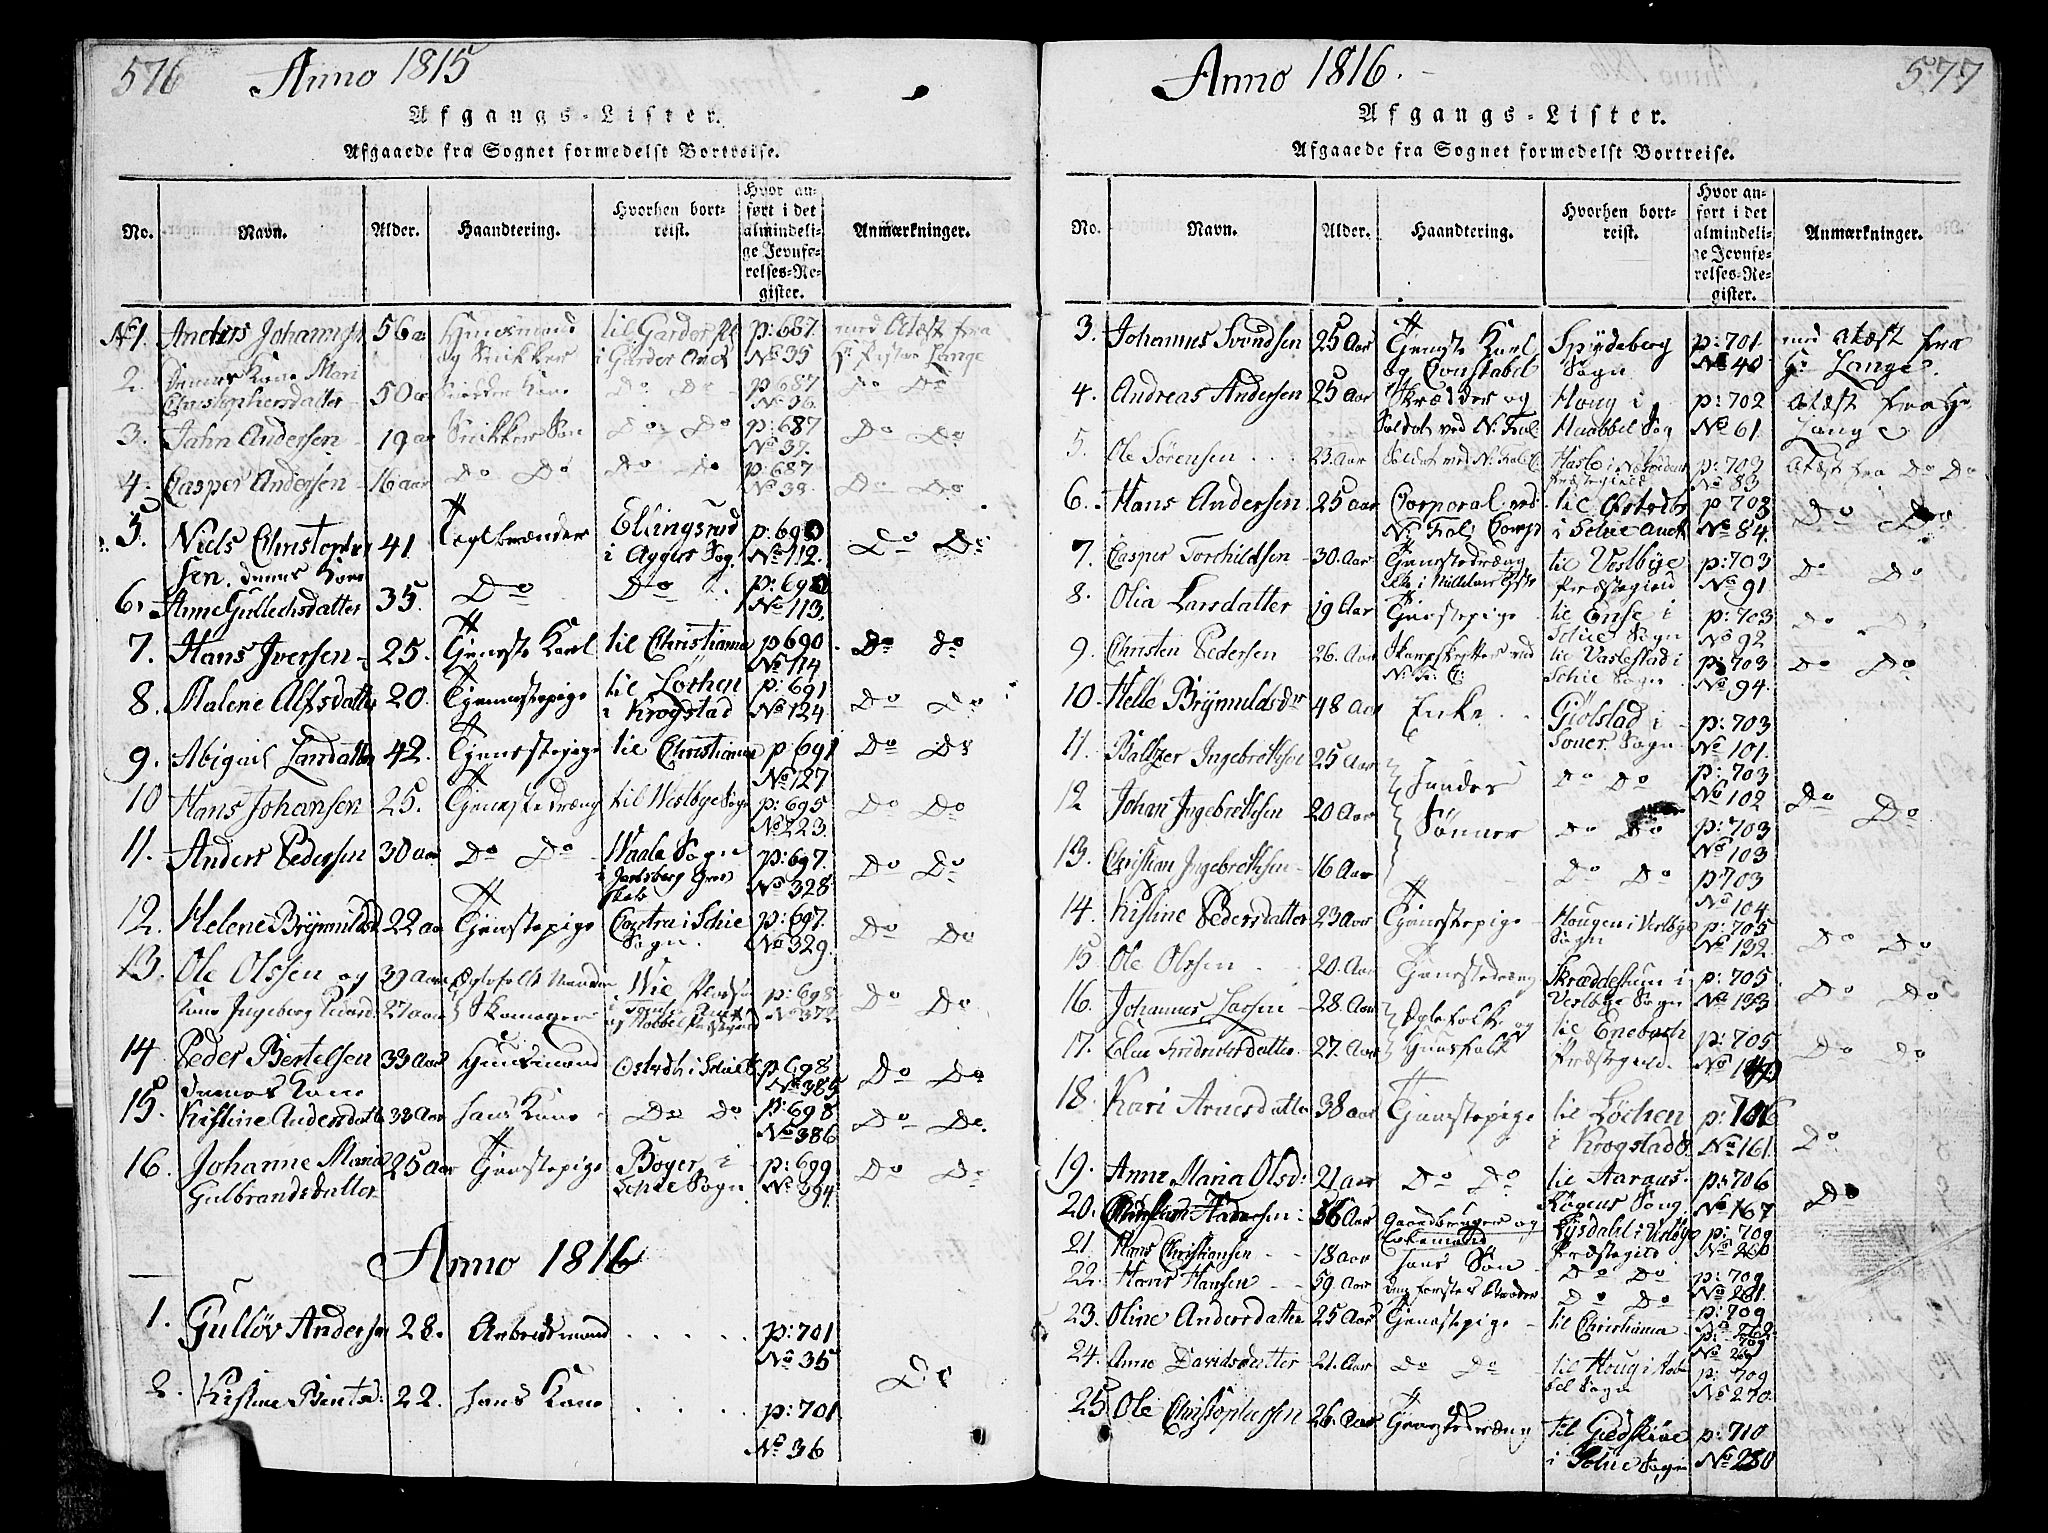 576 Anno 1815
Afgangs-Lister.
Afgaaede fra Sognet formedelst Bortreise.
No. Navn. Alder. Haandtering. Hvorhen bortreist. Hvor anført i det almindelige Jevnførelses-Register. Anmærkninger.
No 1. Anders Johannsen 56 a Huusmand og Snikker til Garder Pl i Garder Anex p: 687. No 35 med Atæst fra Hr Pastor Lange
2. Dennes Kone Mari Christophersdatter 50 aar Kone Do Do p: 687 No 36. Do Do
3. Jahn Andersen 19 a Snikker Søn Do Do p: 687 No 37. Do Do
4. Casper Andersen 16 aar Do Do Do Do p: 687 No 38. Do Do
5. Niels Christophersen. dennes Kone 41 Teglbrænder Ellingsrud i Aggers Sog. p: 690 No 112. Do Do
6. Anne Gullechsdatter 35. Do Do p: 690 No 113.
7. Hans Iversen 25. Tjeneste Karl til Christiania p: 690 No 114 Do Do
8. Malene Alfsdatter 20. Tjenestepige til Løchen i Krogstad p: 691 No 124 Do Do
9. Abigail Larsdatter 42. Tjenestepige til Christiania p: 691 No 127 Do Do
10 Hans Johansen 25. Tjenestedræng til Westbye Sogn p: 695 No 223. Do Do
11. Anders Pedersen 30 aar Do Do Waale Sogn i Jarlsberg Grevskab p: 697. No 328 Do Do
12. Helene Brynnildsd 22 aar Tjenstepige i Schie Sogn. p: 697. No 329. Do Do
13. Ole Olssen og 39 Aar
Kone Ingeborg 27 aar Skomager p: 698 No 372 Do Do
14 Peder Bertelsen 33 Aar Huusmand i Schie p 698 No 385 Do Do
dennes Kone
15. Kistine Andersdatt 33 Aar hans Kone Do Do p: 698 No 386 Do Do.
16. Johanne Maria Gulbrandsdatter 25 Aar Tjenstepige Boger i Schie Sogn p: 699 No 394. Do Do
Anno 1816
1. Gulløv Andersen 28. Arbeidsmand p: 701 No 35
2. Kistine Bentsd: 22. hans Kone p: 701 No 36 Do
Anno 1816. 577
Afgangs-Lister.
Afgaaede fra Sognet formedelst Bortreise.
No. Navn. Alder. Haandtering. Hvorhen bortreist. Hvor anført i det almindelige Jevnførelses-Register. Anmærkninger.
3. Johannes Svendsen 25 Aar Tjeneste Karl og Constabel Spydeberg Sogn p: 701 No 40 med Atæst fra Hr Lange.
4. Andreas Andersen 25 Aar Skrædder og Soldat ved N: Haug i Haabbel Sog p: 702 No 61. Atæst fra Hr Lange
5. Ole Sørensen 23. Aar Soldat ved N: Hasle i Præstegield p: 703 No 83. Atæst fra Do Do
6. Hans Andersen 25 aar Corporal ved N: Corps til i Schie Anex p 703 No 84. Do Do
7. Casper Torchildsen 30. Aar Tjenestedræng til Vestbye Præstegield p: 703 No 91 Do Do
8. Olia Larsdatter 19 Aar Tjenstepige til i Schie Sogn p: 703 No 92 Do Do
9. Christen Pedersen 26. Aar Skarpskytter ved til Vaslestad i Schie Sogn p: 703 No 94. Do Do
10. Helle Brynnildsdr 48 Aar Enke Gjølstad i Soner Sogn p: 703 No 101.
11. Baltzer Ingebretsen 25 Aar hendes Do Do p: 703 No 102
12 Johan Ingebretsen 20 Aar Sønner Do Do p: 703 No 103 Do Do
13. Christian Ingebretsen 16 Aar Do Do p: 703 No 104.
14. Kistine Pedersdatter 23 Aar Tjenestepige Hougen i Vestbye Sogn p: 705 No 132. Do Do
15 Ole Olssen 20. Aar Tjenestedræng Skræddestuen i Vestbye Sogn p: 705. No 133 Do Do
16. Johannes Larsen 28. Aar til Enebach
17. Else Fridrichsdatter 27. Aar Huusfolk Præstegield. p: 705 Do Do
18. Kari Arnesdatter 38 aar Tjenstepige til Løchen i Krogstad S. p: 706 No 161. Do
19. Anne Maria Olsd: 21 aar Do Do til Aaraas Sogn p: 706 No 167 Do
20. Andersen 56 Aar Gaardbruger og i Vestbye Præstegield p: 709
21. Hans Christiansen 18 aar hans Søn Do Do p: 709
22. Hans Hansen 59. Aar den førstes Broder Do Do p: 709
23. Oline Andersdatter 25 Aar Tjenestepige til Christiania p: 709
24. Anne Davidsdatter 21. Aar Do Do til Houg i Hobbel Sogn p: 709 No 270.
25 Ole Christophersen 26. Aar Tjenestedræng til i Schie Sogn p: 710 No 280